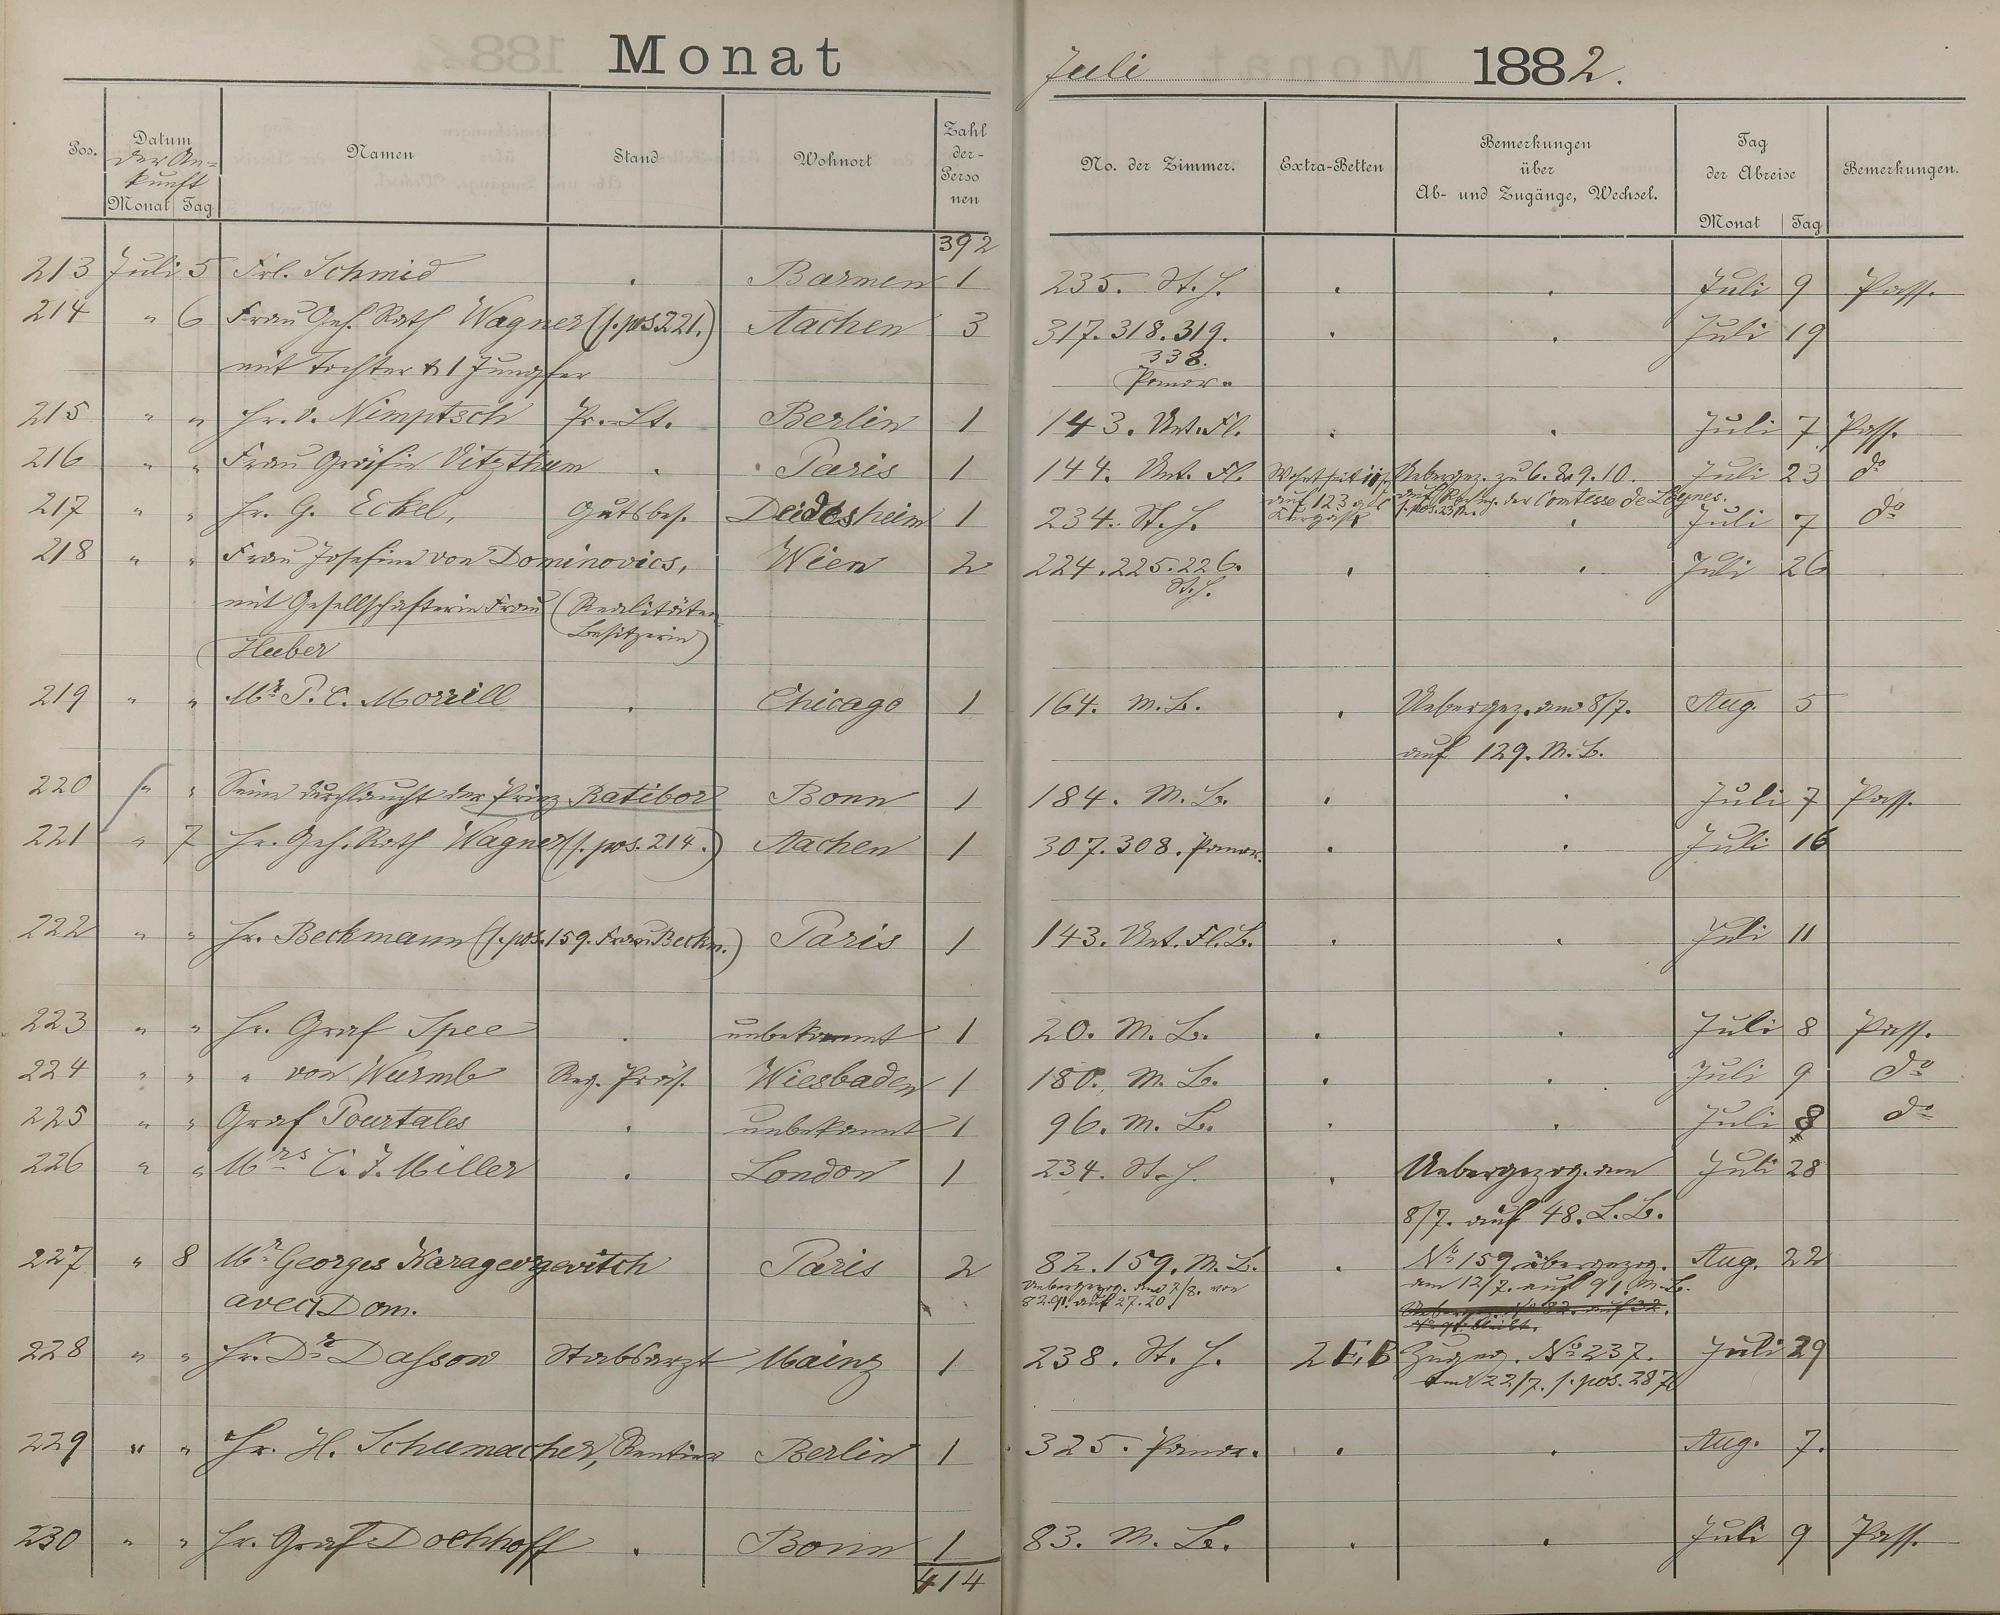 Monat
Juli 1882.
Pos. Datum der An= kunft Monat Tag Namen Stand Wohnort Zahl der- Perso nen No. der Zimmer. Extra-Betten Bemerkungen über Ab- und Zugänge, Wechsel. Tag der Abreise Monat Tag Bemerkungen.
392
213 Juli 5 Frl. Schmid . Barmen 1 235. St. H. . . Juli 9 Pass.
214 " 6 Frau Geh. Rath Wagner (s. pos 221.) Aachen 3 317. 318. 319. . . Juli 19
338.
mit Tochter & 1 Jungfer Panor.
215 " " Hr. v. Nimptsch Pr.-Lt. Berlin 1 143. Unt. Fl. . . Juli 7 Pass.
216 " " Frau Gräfin Vitzthum . Paris 1 144. Unt. Fl. Uebergez. zu 6. 8. 9. 10. Juli 23 do
auf 123 als der Comtesse de
Kurgast
217 " " Hr. G. Eckel, Gutsbes. Deidesheim 1 234. St. H. . Juli 7 do
218 " " Frau Josefine von Dominovics, Wien 2 224. 225. 226. . . Juli 26
St. H.
mit Gesellschafterin Frau (Realitäten-
Besitzerin)
Huber
219 " " Mr P. C. Morrill . Chicago 1 164. M. B. . Uebergez. am 8/7. Aug. 5
auf 129. M. B.
220 " " Seine Durchlaucht der Prinz Ratibor Bonn 1 184. M. B. . . Juli 7 Pass.
221 " 7 Hr. Geh. Rath Wagner (s. pos. 214.) Aachen 1 307. 308. Panor. . . Juli 16
222 " " Hr. Beckmann (s. pos. 159. Frau Beckm.) Paris 1 143. Unt. Fl. B. . . Juli 11
223 " " Hr. Graf Spee . unbekannt 1 20. M. B. . . Juli 8 Pass.
224 " " " von Wurmb Reg. Präs. Wiesbaden 1 180. M. B. . . Juli 9 do
225 " " Graf Pourtales . unbekannt 1 96. M. B. . . Juli 8 do
226 " " Mrs C. J. Miller . London 1 234. St. H. . Uebergezog. am Juli 28
8/7. auf 48. L. B.
227 " 8 Mr Georges Karageorgevitch Paris 2 82. 159. M. B. . No 159 übergezog. Aug. 22
avec 1 Dom. Uebergezog. am 2/8. von am 12/7. auf 91. M. B.
82. 91. auf 27. 20.
228 " " Hr. Dr Dasson Stabsarzt Mainz 1 238. St. H. 2 E.B Zugez. No 237. Juli 29
am 22/7. s. pos. 287
229 " " Hr. H. Schumacher, Rentier Berlin 1 325. Panor. . . Aug. 7.
230 " " Hr. Graf Doenhoff . Bonn 1 83. M. B. . . Juli 9 Pass.
414